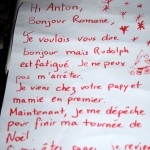 Hi Anton,
Bonjour Romane,
Je voulais vous dire
bonjour mais Rudolph
est fatigué. Je ne peux
pas m'arrêter.
Je viens chez votre papy et
mamie en premier.
Maintenant, je me dépêche
pour finir ma tournée de
Noël.
sages, je reviens